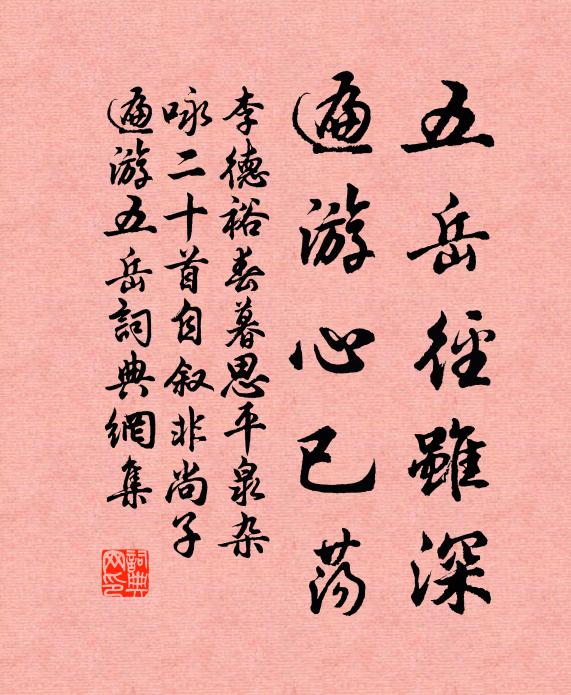 五岳徑雖深
遍游心已荡
李德裕春暮思平泉杂
咏二十首自叙非尚子
遍游五岳詞典網集
詞典
网印